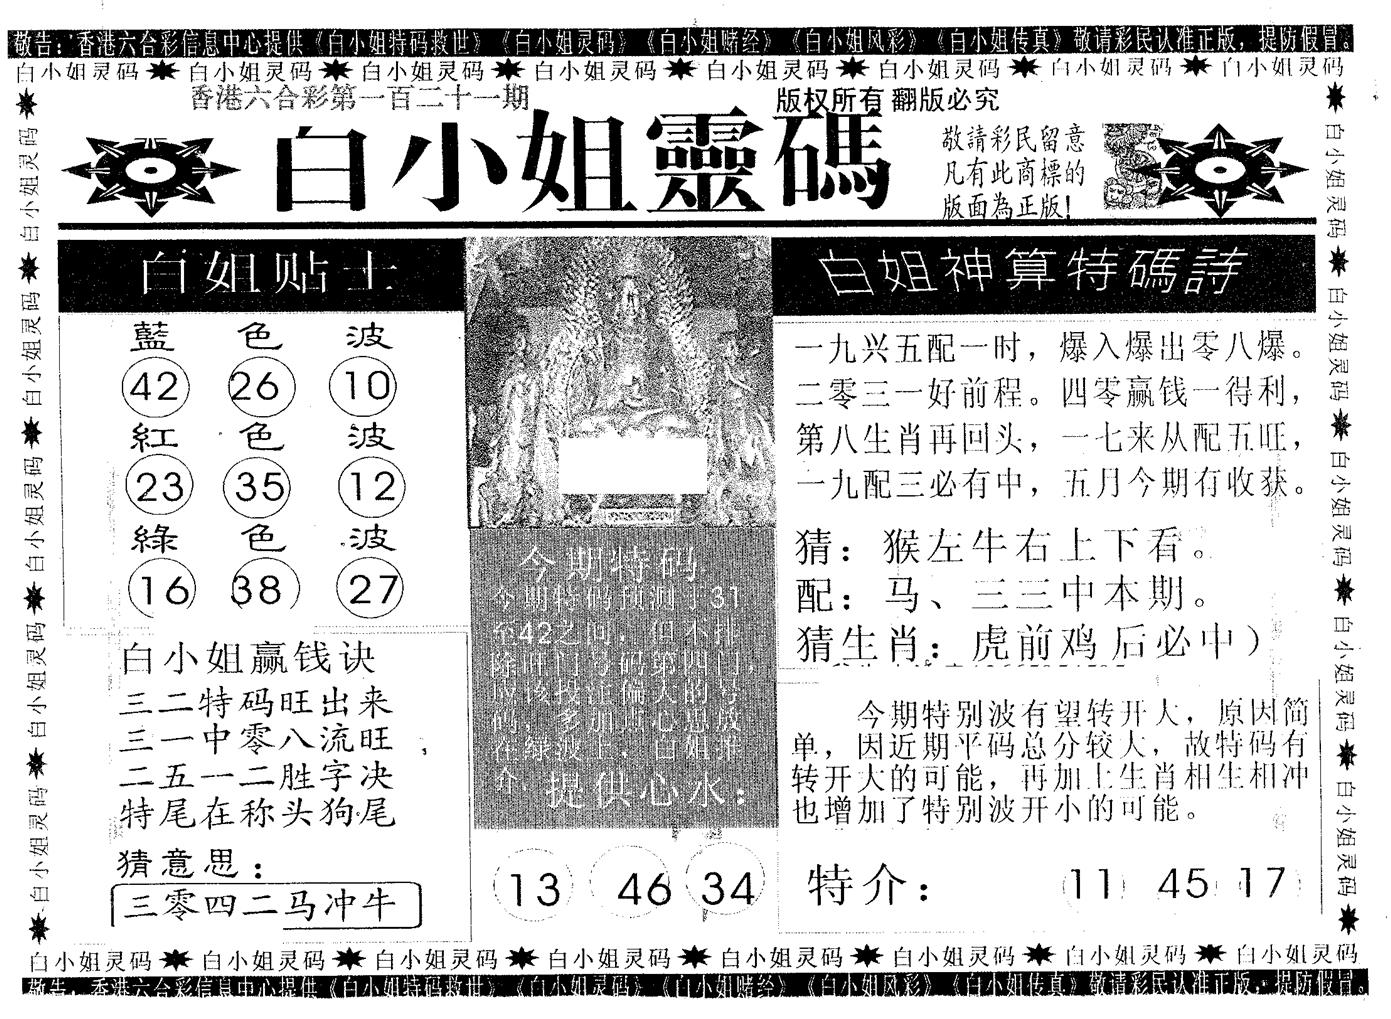 敬告：香港六合彩信息中心提供《白小姐特码救世》《白小姐灵码》《白小姐赌经》《白小姐风彩》《白小姐传真》敬请彩民认准正版，提防假冒。
白小姐灵码 白小姐灵码 白小姐灵码 白小姐灵码 白小姐灵码 白小姐灵码 白小姐灵码 白小姐灵码
香港六合彩第一百二十一期
版权所有 翻版必究
白小姐靈碼
敬請彩民留意
凡有此商標的
版面為正版！
白小姐灵码 白小姐灵码 白小姐灵码 白小姐灵码 白小姐灵码
白姐贴士
藍 色 波
42 26 10
紅 色 波
23 35 12
綠 色 波
16 38 27
白小姐赢钱诀
三二特码旺出来
三一中零八流旺
二五一二胜字决
特尾在称头狗尾
猜意思：
三零四二马冲牛
今期特码
今期特码预测于31
至42之间，但不排
除旺门号码第四门，
应该投注偏大的号
码，多加点心思放
在绿波上，白姐推
介，提供心水：
13 46 34
白姐神算特碼詩
一九兴五配一时，爆入爆出零八爆。
二零三一好前程。四零赢钱一得利，
第八生肖再回头，一七来从配五旺，
一九配三必有中，五月今期有收获。
猜：猴左牛右上下看。
配：马、三三中本期。
猜生肖：虎前鸡后必中）
今期特别波有望转开大，原因简
单，因近期平码总分较大，故特码有
转开大的可能，再加上生肖相生相冲
也增加了特别波开小的可能。
特介： 11 45 17
白小姐灵码 白小姐灵码 白小姐灵码 白小姐灵码 白小姐灵码
白小姐灵码 白小姐灵码 白小姐灵码 白小姐灵码 白小姐灵码 白小姐灵码 白小姐灵码 白小姐灵码
敬告：香港六合彩信息中心提供《白小姐特码救世》《白小姐灵码》《白小姐赌经》《白小姐风彩》《白小姐传真》敬请彩民认准正版，提防假冒。